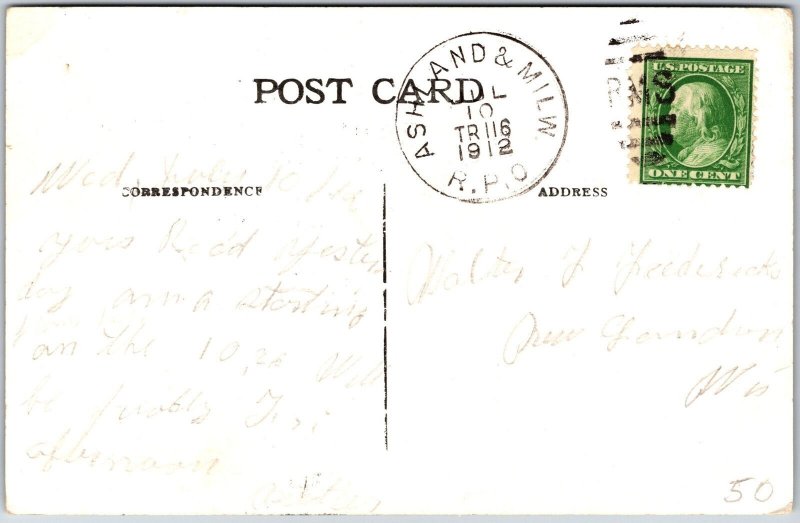 POST CARD
ASHLAND & MILW.
JUL
10
TR 116
1912
R.P.O.
RMS
U.S. POSTAGE
ONE CENT
CORRESPONDENCE
ADDRESS
Wed, July 10
yours Rec'd yester
day am starting
on the 10,20 Will
be Fri
afternoon
Walter J Fredericks
New London
Wis
50